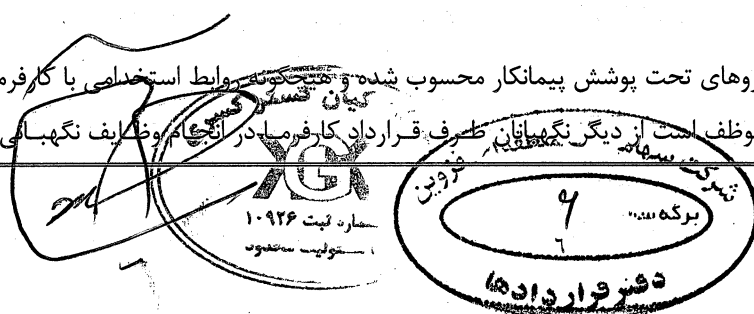 روهای تحت پوشش پیمانکار محسوب شده و هیچگونه روابط استخدامی با کارفرم
وظف است از دیگر نگهبانان طرف قرارداد کارفرما در انجام وظایف نگهبانی
کیان گستر
شماره ثبت ۱۰۹۲۶
مسئولیت محدود
شرکت سهامی قزوین
برگه ۶
۶
دفتر قراردادها